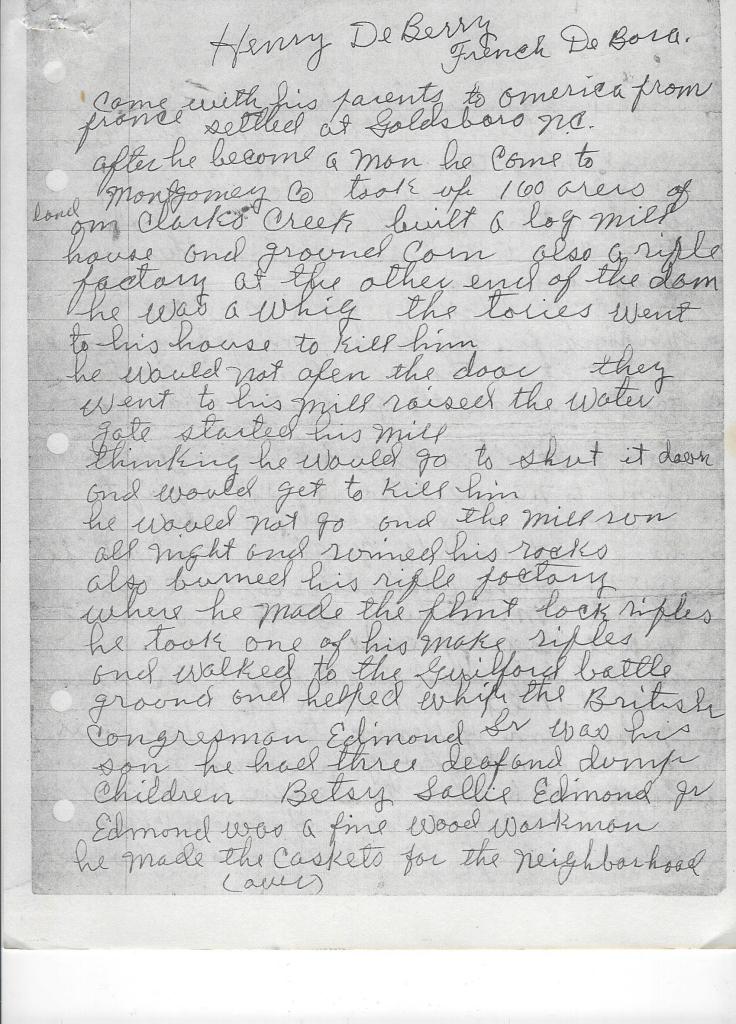 Henry DeBerry
French De Bora.
Come with his parents to america from
france settled at Goldsboro N.C.
after he become a man he Come to
Montgomey Co took up 160 arers of
land on Clarks Creek built a log mill
house and ground Corn also a rifle
factory at the other end of the dam
he was a Whig the tories went
to his house to kill him
he would not open the door they
went to his mill raised the water
gate started his mill
thinking he would go to shut it down
and would get to kill him
he would not go and the mill run
all night and ruined his rocks
also burned his rifle factory
where he made the flint lock rifles
he took one of his make rifles
and walked to the Guilford battle
ground and helped whip the British
Congresman Edmond Sr was his
son he had three deaf and dump
Children Betsy Sallie Edmond Jr
Edmond was a fine wood workman
he made the Caskets for the neighborhood
(over)